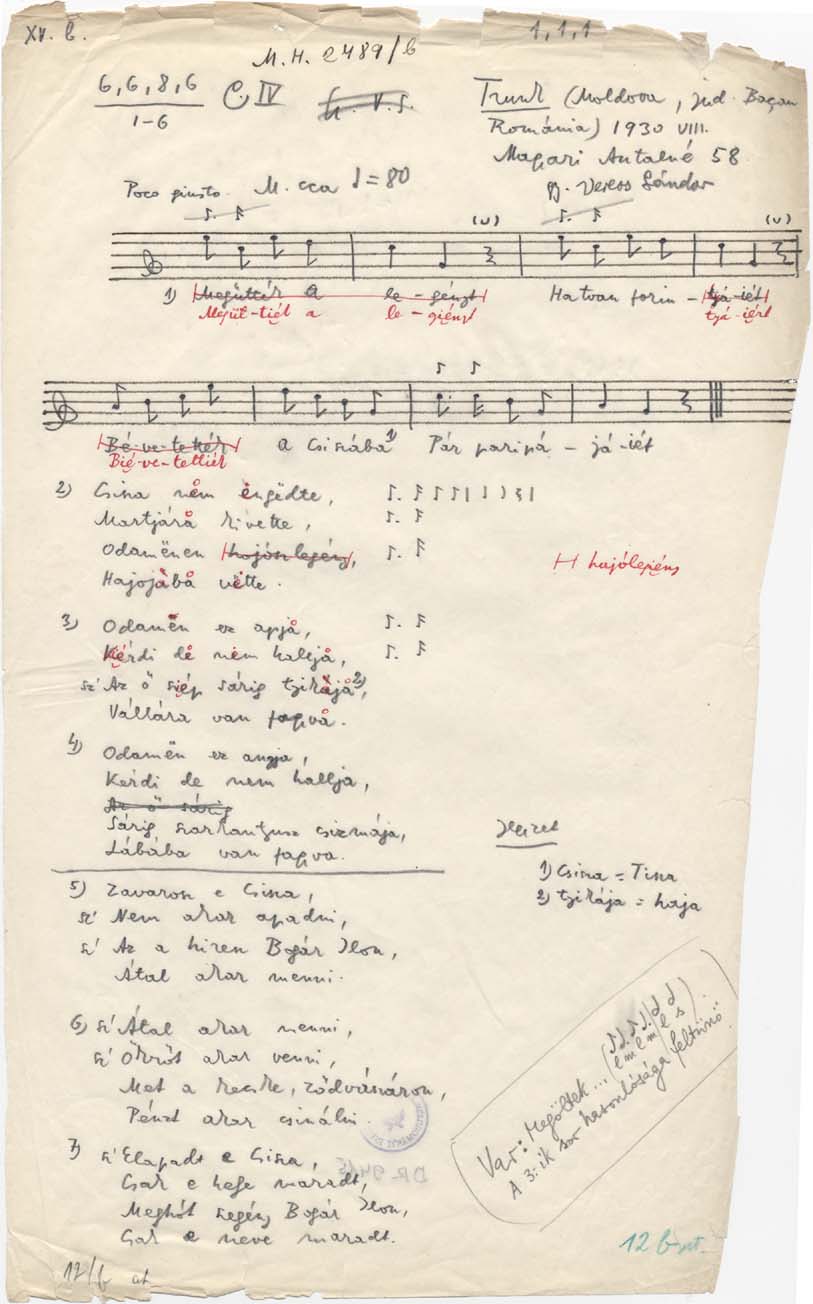 XV. b.
1, 1, 1
M. H. 2489/b
6, 6, 8, 6
1-6
C. IV
Trunk (Moldova, jud. Bacau
Románia) 1930 VIII.
Magari Antalné 58
gy. Veress Sándor
Poco giusto. M. cca ♩=80
1) Megüttér a le-gényt Hatvan forin-tjá-iét
Megüt-tiël a le-giényt tjá-iért
Bé-ve-tettér A Csiszába 1) Pár paripá-já-iét
Bié-ve-tettiér
2) Csisza nem engëdte,
Martjára kivette,
Odamënen hajósz legény,
H hajólegiény
Hajojába vëtte.
3) Odamën ez apja,
Kérdi de nem hallja,
sz' Az ő sziép sárig tzikája 2),
Vállára van fagyva.
4) Odamën ez anyja,
Kérdi de nem hallja,
Az ő sárig
Sárig szarkantyusz csizmája,
Lábába van fagyva.
Jegyzet
1) Csisza = Tisza
2) tzikája = haja
5) Zavaros e Csisza,
sz' Nem akar apadni,
sz' Az a hires Bogár Ilon,
Átal akar menni.
6) sz' Átal akar menni,
sz' Ökröt akar venni,
Met a kecske, ződvásáron,
Pénzt akar csinálni.
7) sz' Elapadt e Csisza,
Csak e hege maradt,
Meghót szegény Bogár Ilon,
Csak e neve maradt.
Var: Megöltek...
A 3.-ik sor hasonlósága feltünő.
12/b
12 b